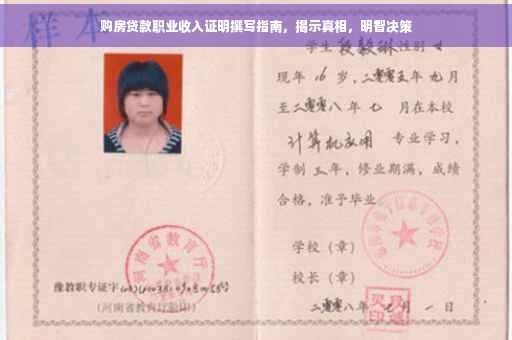 购房贷款职业收入证明撰写指南，揭示真相，明智决策
样本
学生段毅琳性别女
现年16岁，二零零五年九月
至二零零八年七月在本校
计算机应用 专业学习，
学制三年，修业期满，成绩
合格，准予毕业。
学校（章）
校长（章）
河南省教育厅
豫教职专证字
（河南省教育厅验印）
二零零八年七月一日